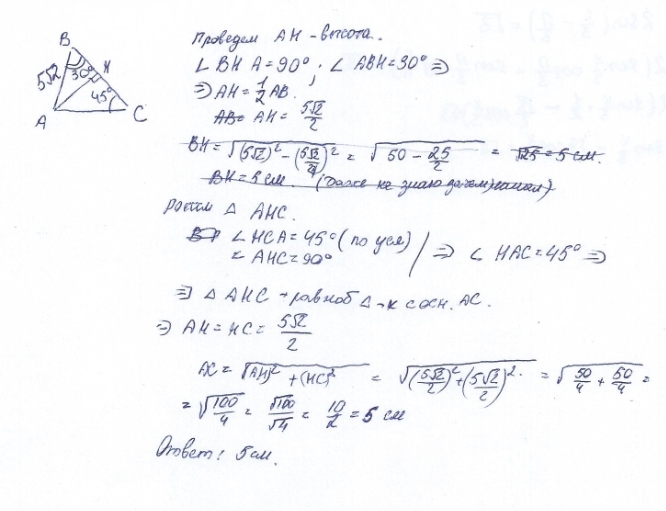 B
5√2
30°
H
45°
A
C
Проведем AH - высота.
∠BHA=90°; ∠ABH=30° ⇒
⇒ AH=1/2 AB.
AB= AH= 5√2/2
BH=√((5√2)²-(5√2/2)²) = √(50-25/2) = √25=5 см.
BH=5 см. (Даже не знаю зачем)
△ AHC.
∠HCA=45° (по усл)
∠AHC=90° / ⇒ ∠HAC=45° ⇒
⇒ △AHC - равноб △-к с осн. AC.
⇒ AH=HC= 5√2/2
AC= √((AH)²+(HC)²) = √((5√2/2)²+(5√2/2)²) = √(50/4+50/4) =
= √(100/4) = √100/√4 = 10/2 = 5 см
Ответ: 5см.